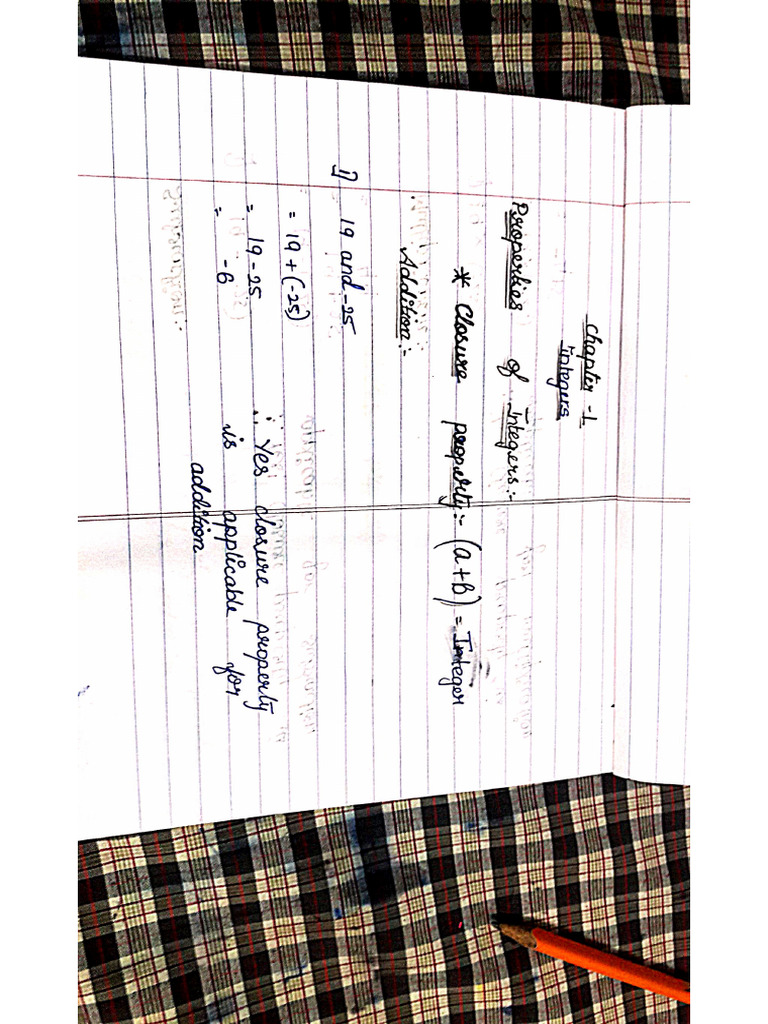 Chapter -1
Integers
Properties of Integers:-
* Closure property:- (a+b) = Integer
Addition:-
1) 19 and -25
= 19 + (-25)
= 19 - 25
= -6
∴ Yes closure property
is applicable for
addition